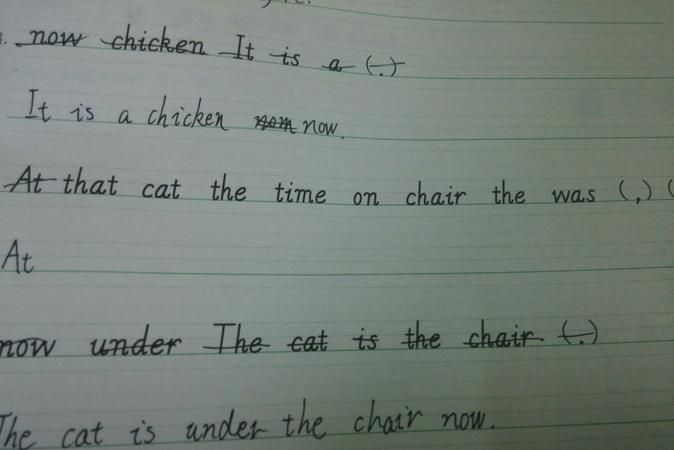 now chicken It is a (.)
It is a chicken now.
At that cat the time on chair the was (,) (
At
now under The cat is the chair (.)
The cat is under the chair now.